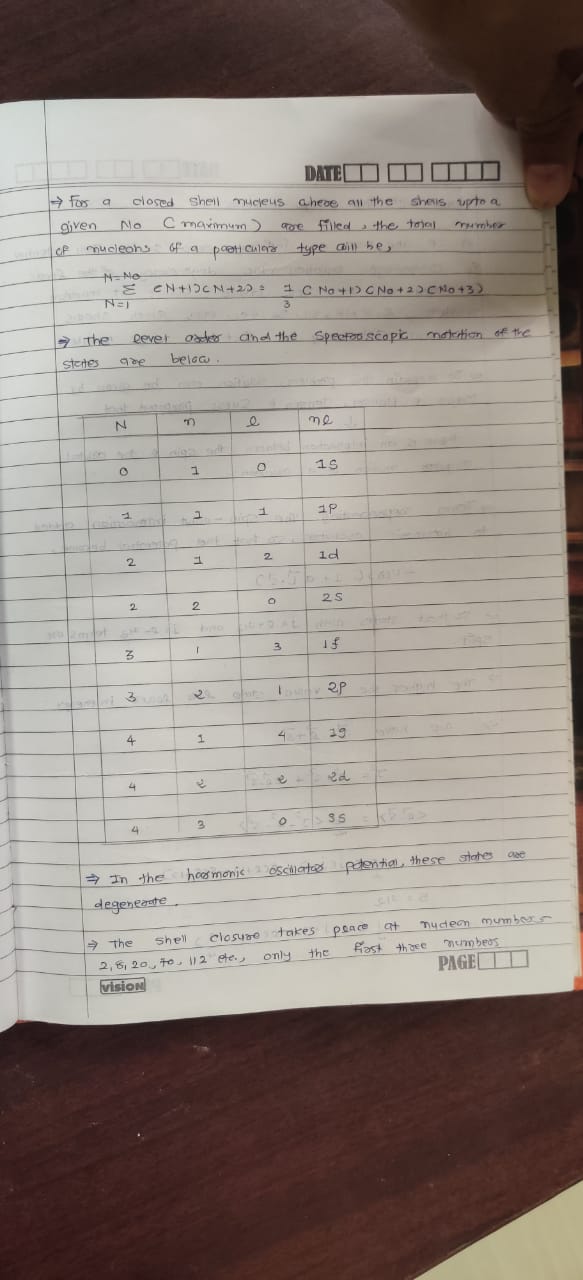 DATE
→ For a closed shell nucleus where all the shells upto a
given No (maximum) are filled, the total number
of nucleons of a particular type will be,
N=No
Σ (N+1)(N+2) = 1/3 (No+1)(No+2)(No+3)
N=1
→ The level order and the spectroscopic notation of the
states are below.
N n l nl
0 1 0 1S
1 1 1 1P
2 1 2 1d
2 2 0 2S
3 1 3 1f
3 2 1 2P
4 1 4 1g
4 2 2 2d
4 3 0 3S
⇒ In the harmonic oscillator potential, these states are
degenerate.
⇒ The shell closure takes peace at nucleon numbers
2, 8, 20, 70, 112 etc., only the first three numbers
PAGE
vision